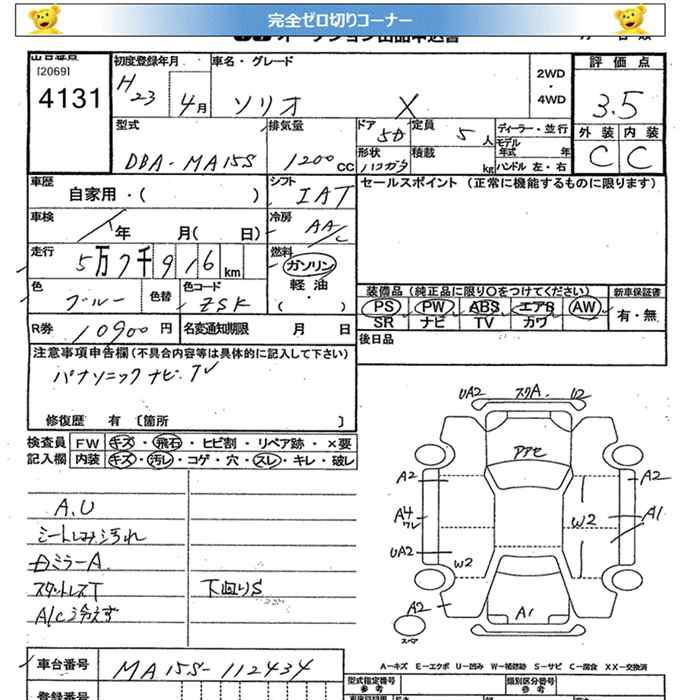 完全ゼロ切りコーナー
オークション出品申込書
[2069]
4131
初度登録年月 車名・グレード 2WD・4WD 評価点
H23 4月 ソリオ X 3.5
型式 排気量 ドア 定員 ディーラー・並行 外装 内装
DBA-MA15S 1200cc 5D 5人 モデル年式 年 C C
形状 積載 kg ハンドル 左・右
車歴 シフト セールスポイント (正常に機能するものに限ります)
自家用・( ) IAT
車検 冷房
年 月( 日) AA/C
走行 燃料
5万7千916km ガソリン
軽油
( )
装備品(純正品に限り○をつけてください) 新車保証書
PS PW ABS エアB AW 有・無
SR ナビ TV カワ
色 色替 色コード
ブルー ZSK
R券 10900円 名変通知期限 月 日
後日品
注意事項申告欄(不具合内容等は具体的に記入して下さい)
パナソニックナビ.TV
修復歴 有 〔箇所 〕
検査員 FW キズ・飛石・ヒビ割・リペア跡・×要
記入欄 内装 キズ・汚レ・コゲ・穴・スレ・キレ・破レ
A.U
シートしみ汚れ
ミラーA.
スタットレスT 下廻りS
A/C冷えず
UA2 スクA. U2
アアセ
A2 A2
A4 ワレ W2 A1
UA2 W2
A2 A1
スペア
A-キズ E-エクボ U-凹み W-補修跡 S-サビ C-腐食 XX-交換済
車台番号 MA15S-112434
型式指定番号 類別区分番号
参考 参考
登録番号